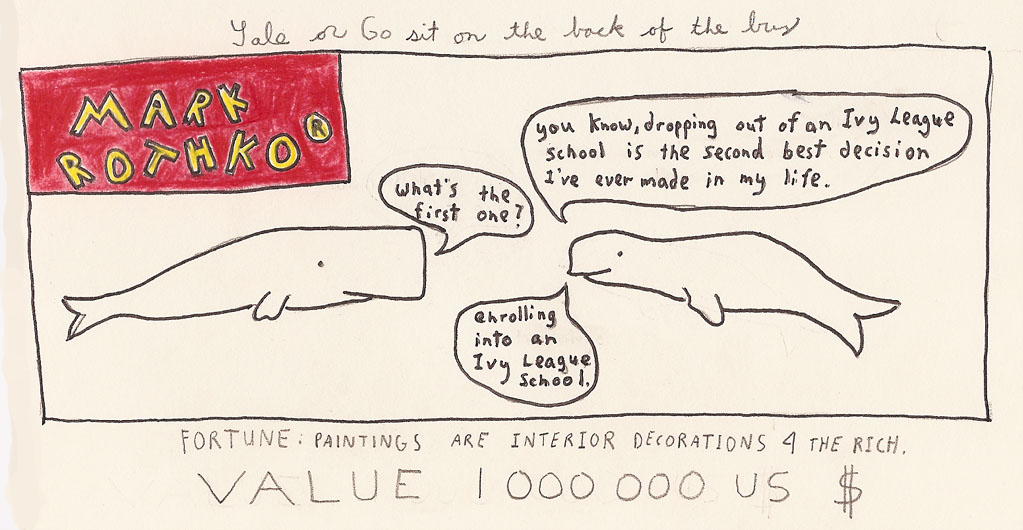 Yale or Go sit on the back of the bus
MARK
ROTHKO®
you know, dropping out of an Ivy League
school is the second best decision
I've ever made in my life.
What's the
first one?
enrolling
into an
Ivy League
School.
FORTUNE: PAINTINGS ARE INTERIOR DECORATIONS 4 THE RICH.
VALUE 1000 000 US $